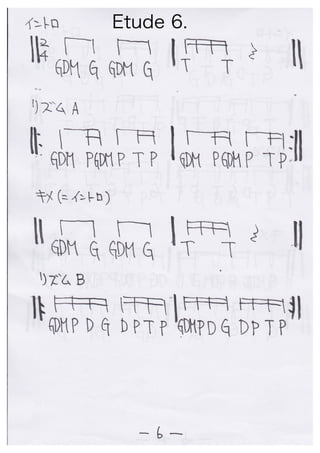 Etude 6.
イントロ
2/4 GDM G GDM G T T
リズム A
GDM P GDM P T P GDM P GDM P T P
キメ(=イントロ)
GDM G GDM G T T
リズム B
GDM P D G D P T P GDM P D G D P T P
— 6 —